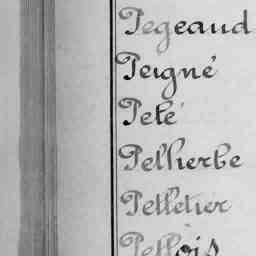 Pegeaud
Peigné
Pelé
Pelherbe
Pelletier
Pellois